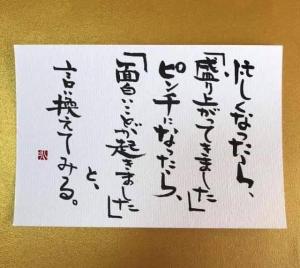 忙しくなったら、
「盛り上がってきました」
ピンチになったら、
「面白いことが起きました」
と、
言い換えてみる。